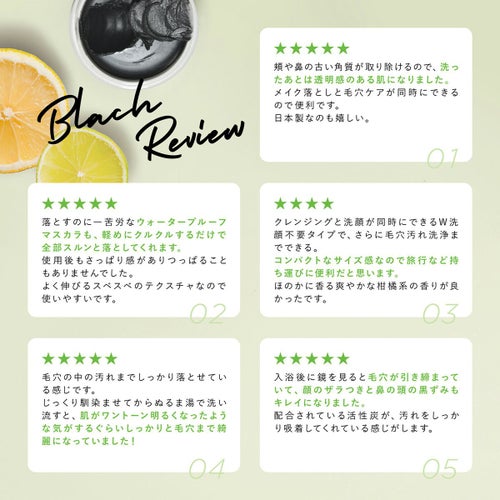 Blach
Review
★★★★★
頬や鼻の古い角質が取り除けるので、洗っ
たあとは透明感のある肌になりました。
メイク落としと毛穴ケアが同時にできる
ので便利です。
日本製なのも嬉しい。
01
★★★★★
落とすのに一苦労なウォータープルーフ
マスカラも、軽めにクルクルするだけで
全部スルンと落としてくれます。
使用後もさっぱり感がありつっぱること
もありませんでした。
よく伸びるスベスベのテクスチャなので
使いやすいです。
02
★★★★
クレンジングと洗顔が同時にできるW洗
顔不要タイプで、さらに毛穴汚れ洗浄ま
でできる。
コンパクトなサイズ感なので旅行など持
ち運びに便利だと思います。
ほのかに香る爽やかな柑橘系の香りが良
かったです。
03
★★★★★
毛穴の中の汚れまでしっかり落とせてい
る感じです。
じっくり馴染ませてからぬるま湯で洗い
流すと、肌がワントーン明るくなったよう
な気がするぐらいしっかりと毛穴まで綺
麗になっていました！
04
★★★★★
入浴後に鏡を見ると毛穴が引き締まって
いて、顔のザラつきと鼻の頭の黒ずみも
キレイになりました。
配合されている活性炭が、汚れをしっか
り吸着してくれている感じがします。
05